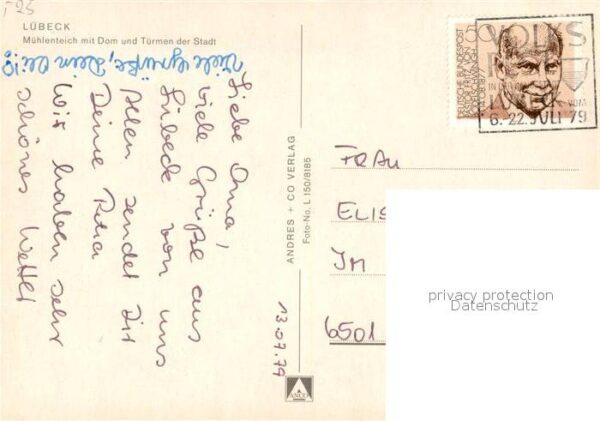 T 25
LÜBECK
Mühlenteich mit Dom und Türmen der Stadt
Viele Grüße, Dein
Liebe Oma,
viele Grüße aus
Lübeck von uns
Allen sendet Dir
Deine Petra
Wir haben sehr
schönes Wetter
13.07.79
ANDRES + CO VERLAG
Foto-No. L 150/8185
ANCO
50
DEUTSCHE BUNDESPOST
VOLKS
IN
VOM
6.-22. JULI 79
FRAU
ELIS
IM
6501
privacy protection
Datenschutz